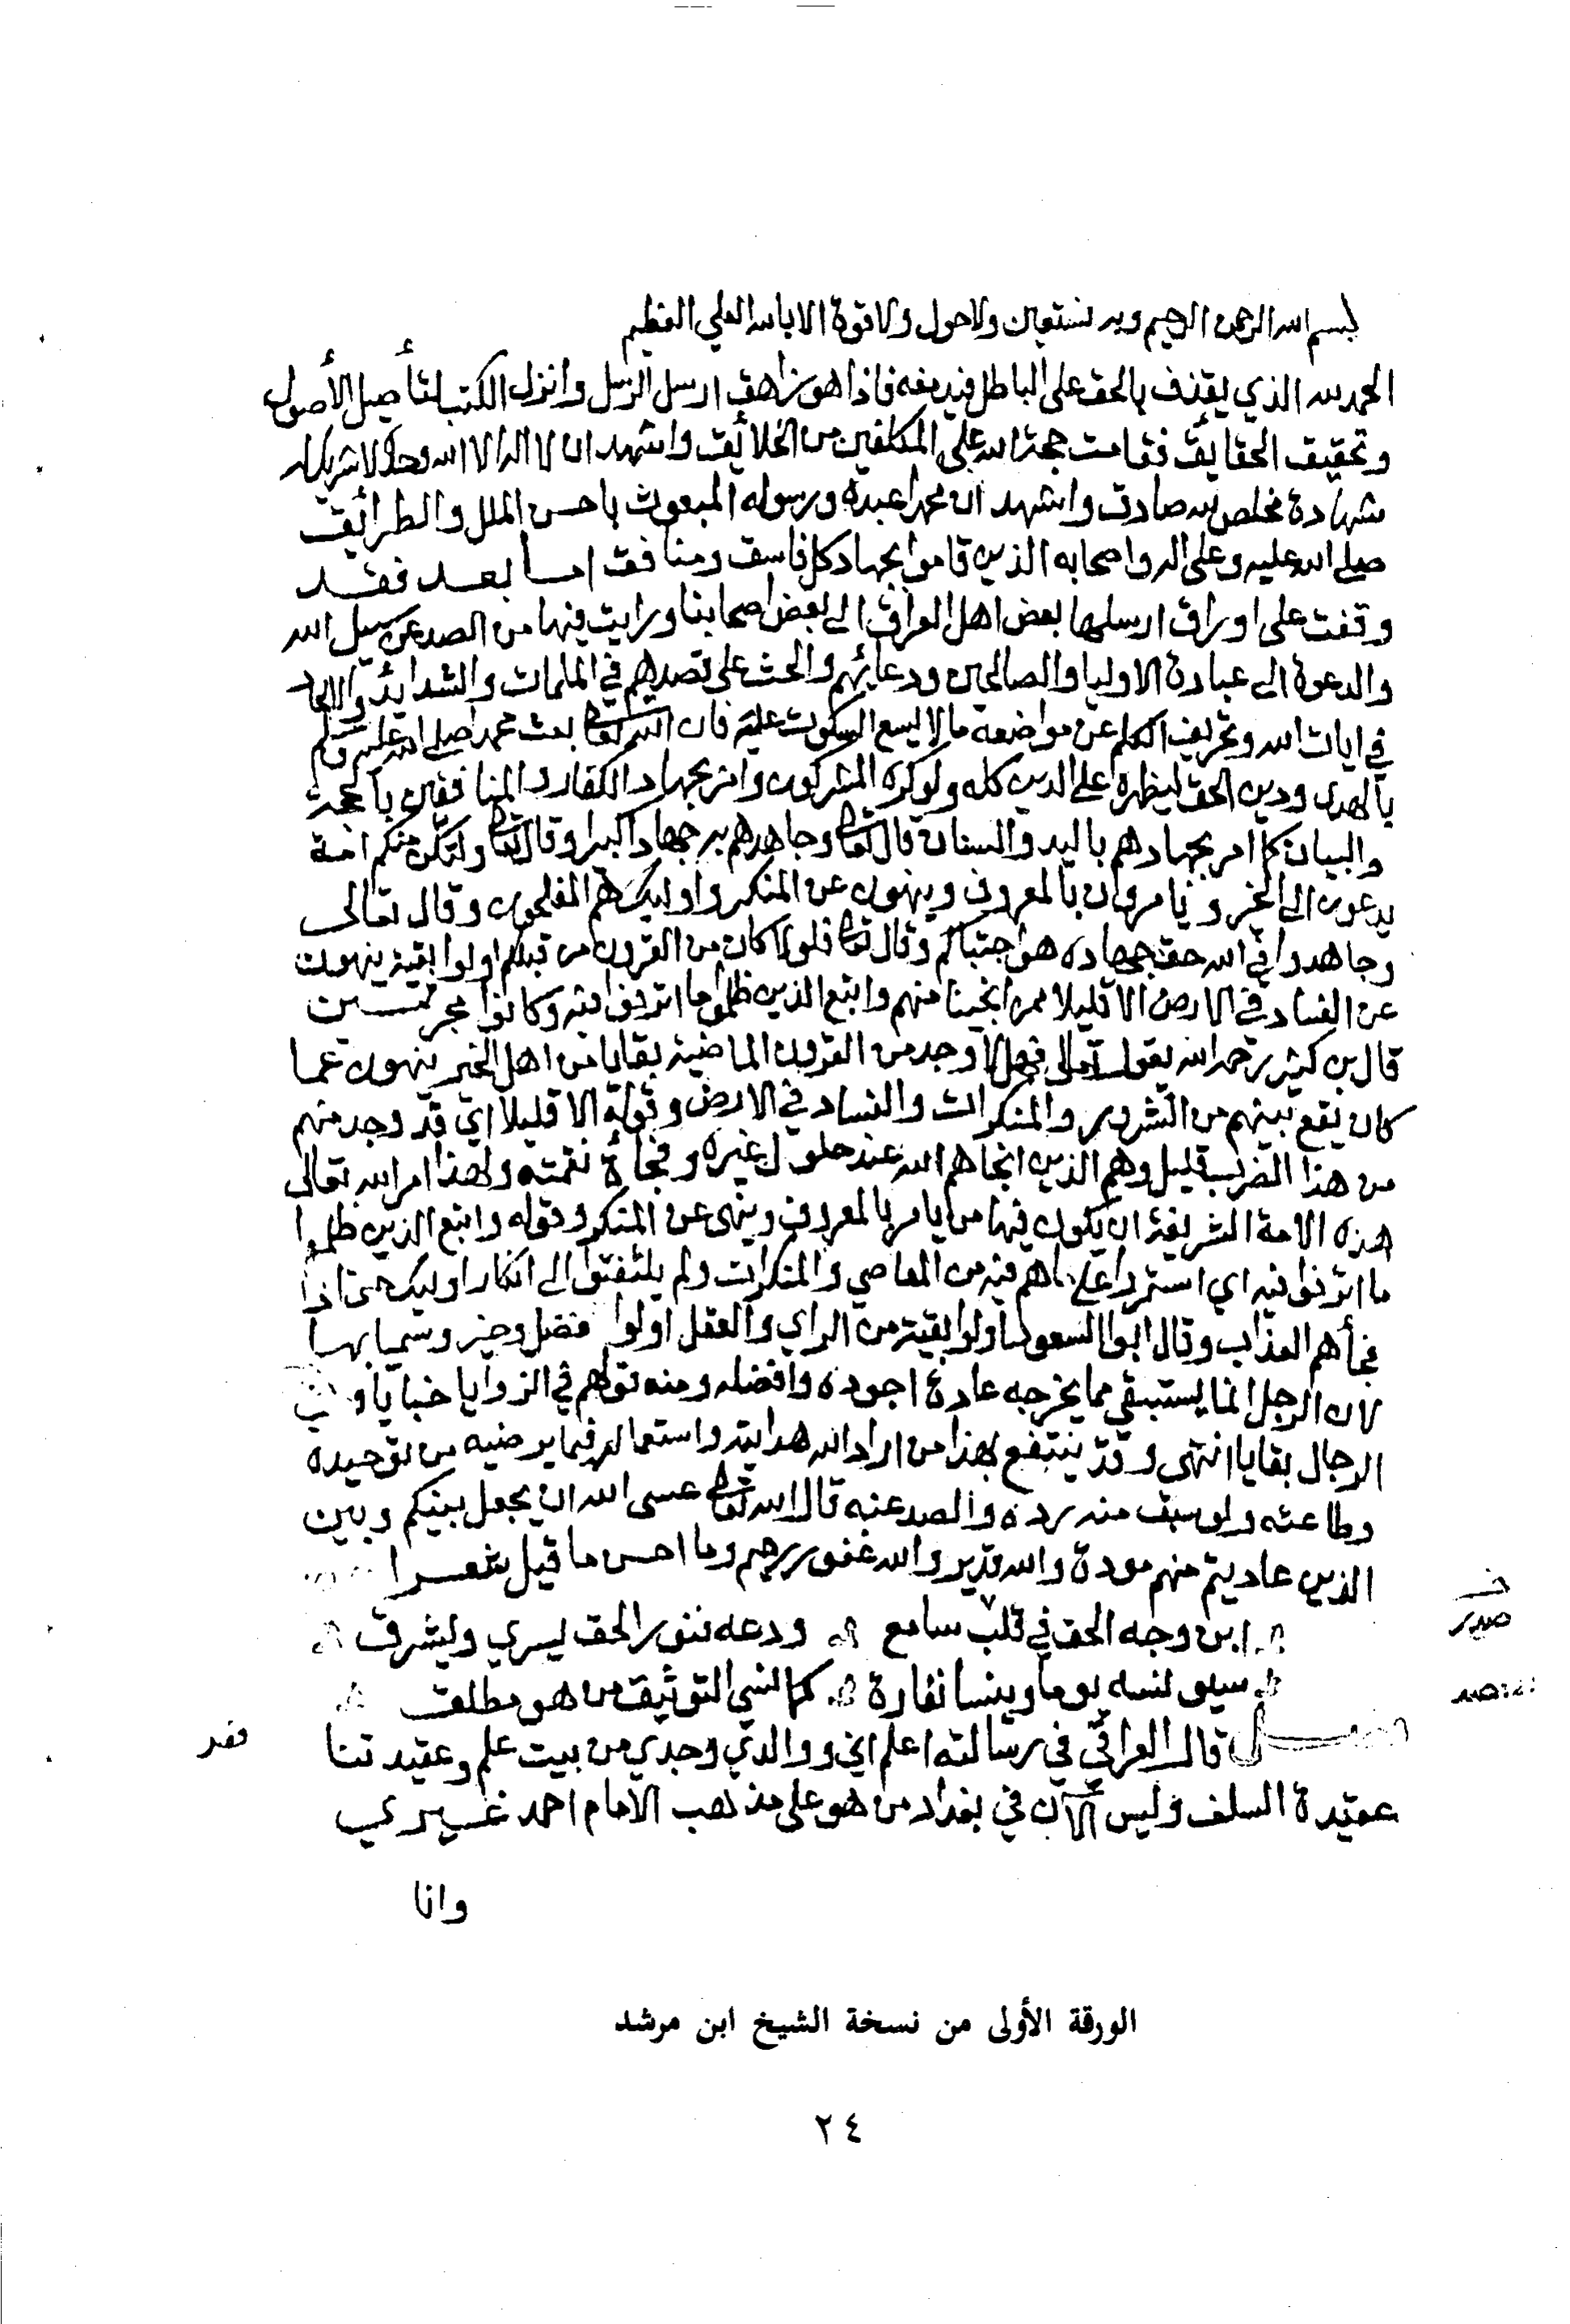 بسم الله الرحمن الرحيم وبه نستعين ولا حول ولا قوة الا بالله العلي العظيم
الحمد لله الذي يقذف بالحق على الباطل فيدمغه فاذا هو زاهق ارسل الرسل وانزل الكتب لتأصيل الأصول
وتحقيق الحقايق فقامت حجة الله على المكلفين من الخلائق واشهد ان لا اله الا الله وحده لا شريك له
شهادة مخلص لله صادق واشهد ان محمدا عبده ورسوله المبعوث باحسن الملل والطرائق
صلى الله عليه وعلى اله واصحابه الذين قاموا بجهاد كل فاسق ومنافق اما بعد فقد
وقفت على اوراق ارسلها بعض اهل العراق الى بعض اصحابنا ورايت فيها من الصد عن سبيل الله
والدعوة الى عبادة الاوليا والصالحين ودعائهم والحث على قصدهم في الملمات والشدايد والالحاد
في ايات الله وتحريف الكلم عن مواضعه ما لا يسع السكوت عليه فان الله تعالى بعث محمدا صلى الله عليه وسلم
بالهدى ودين الحق ليظهره على الدين كله ولو كره المشركون وامر بجهاد الكفار والمنافقين بالحجة
والبيان كما امر بجهادهم باليد والسنان قال تعالى وجاهدهم به جهادا كبيرا وقال تعالى ولتكن منكم امة
يدعون الى الخير ويامرون بالمعروف وينهون عن المنكر واوليك هم المفلحون وقال تعالى
وجاهدوا في الله حق جهاده هو اجتباكم وقال تعالى فلولا كان من القرون من قبلكم اولوا بقية ينهون
عن الفساد في الارض الا قليلا ممن انجينا منهم واتبع الذين ظلموا ما اترفوا فيه وكانوا مجرمين
قال بن كثير رحمه الله يقول تعالى فهلا وجد من القرون الماضية بقايا من اهل الخير ينهون عما
كان يقع بينهم من الشرور والمنكرات والفساد في الارض وقوله الا قليلا اي قد وجد منهم
من هذا الضرب قليل وهم الذين انجاهم الله عند حلول غيره وفجأة نقمته ولهذا امر الله تعالى
هذه الامة الشريفة ان يكون فيها من يامر بالمعروف وينهى عن المنكر وقوله واتبع الذين ظلموا
ما اترفوا فيه اي استمروا على ما هم فيه من المعاصي والمنكرات ولم يلتفتوا الى انكار اوليك حتى اذا
فجأهم العذاب وقال ابوا السعود اولوا بقية من الراي والعقل اولوا فضل وخير وسميا بها
لان الرجل انما يستبقي مما يخرجه عادة اجوده وافضله ومنه قولهم في الزوايا خبايا وفي
الرجال بقايا انتهى وقد ينتفع بهذا من اراد الله هدايته واستعماله فيما يرضيه من توحيده
وطاعته ولو سبق منه رده والصد عنه قال الله تعالى عسى الله ان يجعل بينكم وبين
الذين عاديتم منهم مودة والله قدير والله غفور رحيم وما احسن ما قيل شعرا
ابن وجه الحق في قلب سامع ودعه فنور الحق يسري ويشرق
سيونسه يوما وينسا نفاره كما نسي التوثيق من هو مطلق
فصل قال العراقي في رسالته اعلم اني ووالدي وجدي من بيت علم وعقيدتنا
عقيدة السلف وليس الآن في بغداد من هو على مذهب الامام احمد غيري
وانا
صدر
فقد
الورقة الأولى من نسخة الشيخ ابن مرشد
٢٤